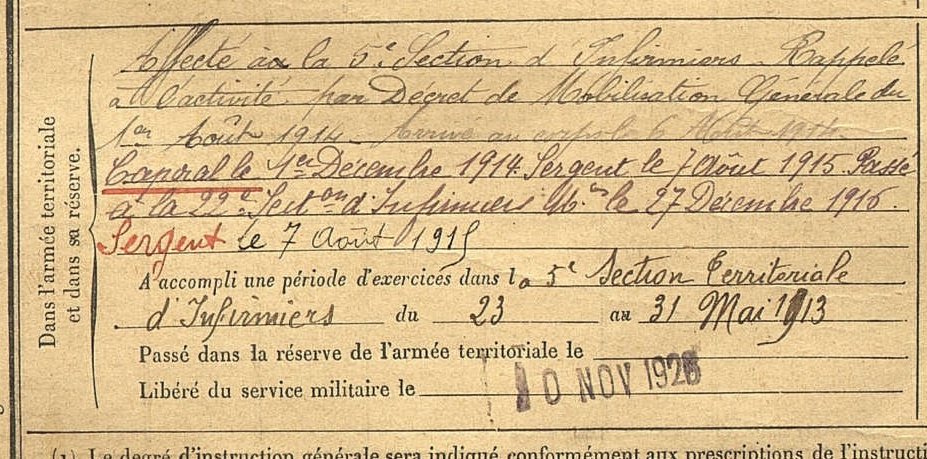 Dans l'armée territoriale
et dans sa réserve.
Affecté à la 5e Section d'Infirmiers. Rappelé
à l'activité par Décret de Mobilisation Générale du
1er Août 1914. Arrivé au corps le 6 Août 1914.
Caporal le 1er Décembre 1914. Sergent le 7 Août 1915. Passé
à la 22e Section d'Infirmiers Mres le 27 Décembre 1916.
Sergent le 7 Août 1915
A accompli une période d'exercices dans la 5e Section Territoriale
d'Infirmiers du 23 au 31 Mai 1913
Passé dans la réserve de l'armée territoriale le
Libéré du service militaire le 10 NOV 192
(1) Le degré d'instruction générale sera indiqué conformément aux prescriptions de l'instructi